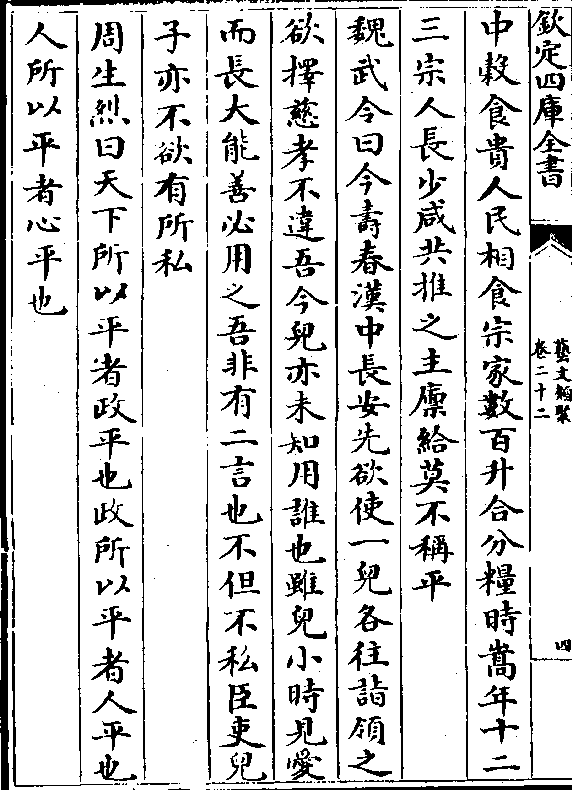 欽定四庫全書
藝文類聚
卷二十二
四
中穀食貴人民相食宗家數百升合分糧時嵩年十二
三宗人長少咸共推之主廩給莫不稱平
魏武令曰今壽春漢中長安先欲使一兒各往詣領之
欲擇慈孝不違吾令兒亦未知用誰也雖兒小時見愛
而長大能善必用之吾非有二言也不但不私臣吏兒
子亦不欲有所私
周生烈曰天下所以平者政平也政所以平者人平也
人所以平者心平也